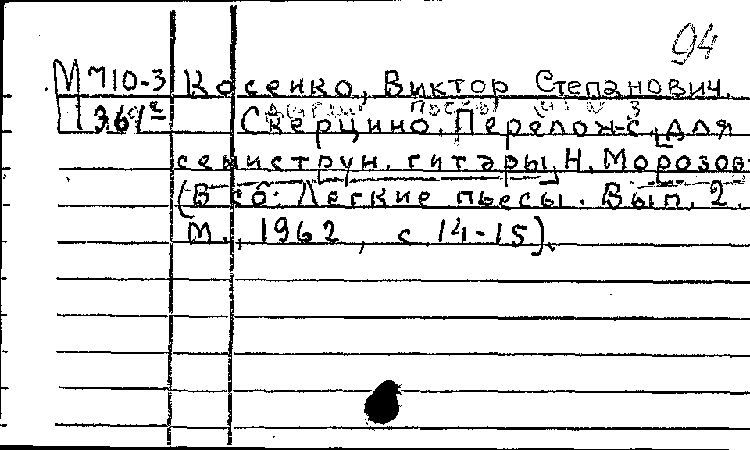 94
М М10-3 Косенко, Виктор Степанович.
Скерцино. Перелож-с. для
семиструн. гитары Н. Морозов
(В сб: Легкие пьесы. Вып. 2.
М., 1962, с. 14-15).